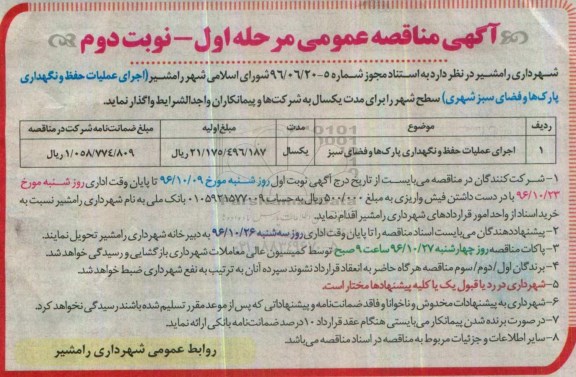 آگهی مناقصه عمومی مرحله اول – نوبت دوم
شهرداری رامشیر در نظر دارد به استناد مجوز شماره ۵-۹۶/۰۶/۲۰ شورای اسلامی شهر رامشیر (اجرای عملیات حفظ و نگهداری
پارک‌ها و فضای سبز شهری) سطح شهر را برای مدت یکسال به شرکت‌ها و پیمانکاران واجدالشرایط واگذار نماید.
ردیف موضوع مدت مبلغ اولیه مبلغ ضمانت‌نامه شرکت در مناقصه
۱ اجرای عملیات حفظ و نگهداری پارک‌ها و فضای سبز یکسال ۲۱/۱۷۵/۴۹۶/۱۸۷ ریال ۱/۰۵۸/۷۷۴/۸۰۹ ریال
۱- شرکت کنندگان در مناقصه می‌بایست از تاریخ درج آگهی نوبت اول روز شنبه مورخ ۹۶/۱۰/۰۹ تا پایان وقت اداری روز شنبه مورخ
۹۶/۱۰/۲۳ با در دست داشتن فیش واریزی به مبلغ ۵۰۰/۰۰۰ ریال به حساب ۰۱۰۵۹۲۱۵۷۷۰۰۹ بانک ملی به نام شهرداری رامشیر نسبت به
خرید اسناد از واحد امور قراردادهای شهرداری رامشیر اقدام نماید.
۲- پیشنهاددهندگان می‌بایست اسناد مناقصه را تا پایان وقت اداری روز سه‌شنبه ۹۶/۱۰/۲۶ به دبیرخانه شهرداری رامشیر تحویل نمایند.
۳- پاکات مناقصه روز چهارشنبه ۹۶/۱۰/۲۷ ساعت ۹ صبح توسط کمیسیون عالی معاملات شهرداری بازگشایی و رسیدگی خواهد شد.
۴- برندگان اول/دوم/سوم مناقصه هرگاه حاضر به انعقاد قرارداد نشوند سپرده آنان به ترتیب به نفع شهرداری ضبط خواهد شد.
۵- شهرداری در رد یا قبول یک یا کلیه پیشنهادها مختار است.
۶- شهرداری به پیشنهادات مخدوش و ناخوانا و فاقد ضمانت‌نامه و پیشنهاداتی که پس از موعد مقرر تسلیم شده باشند رسیدگی نخواهد کرد.
۷- در صورت برنده شدن پیمانکار می‌بایستی هنگام عقد قرارداد ۱۰ درصد ضمانت‌نامه بانکی ارائه نماید.
۸- سایر اطلاعات و جزئیات مربوط به مناقصه در اسناد مناقصه می‌باشد.
روابط عمومی شهرداری رامشیر